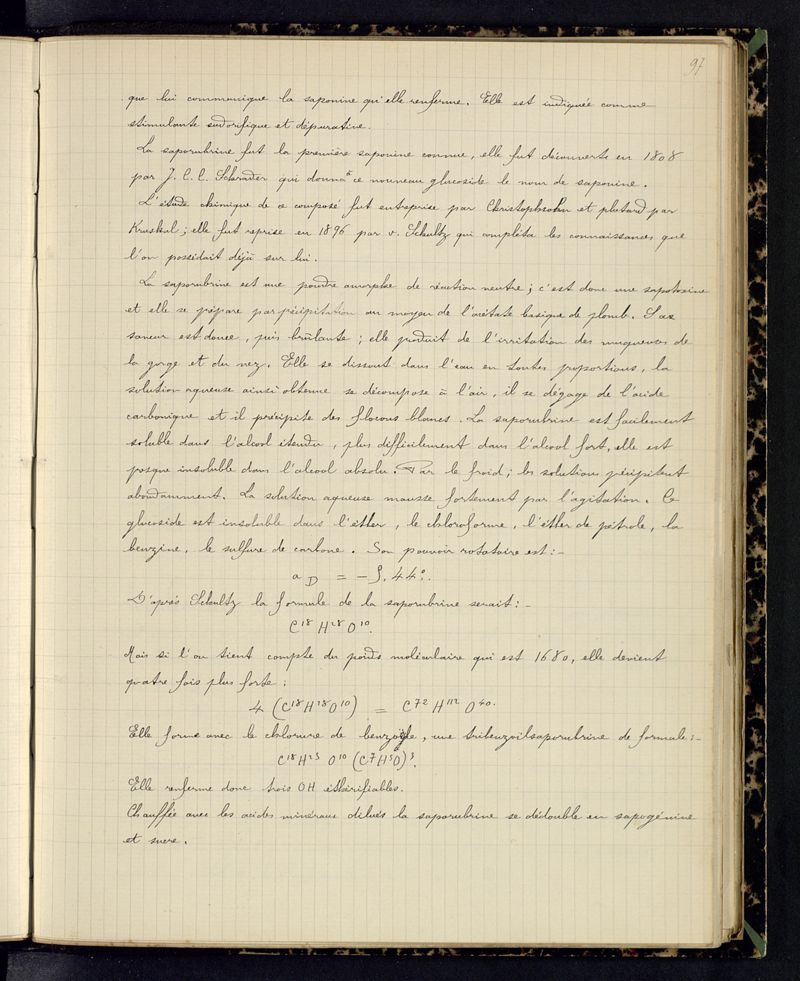 97
que lui communique la saponine qu'elle renferme. Elle est indiquée comme
stimulante sudorifique et dépurative.
La saporubrine fut la première saponine connue, elle fut découverte en 1808
par J. C. C. Schrader qui donna à ce nouveau glucoside le nom de saponine.
L'étude chimique de ce composé fut entreprise par Christophsohn et plutard par
Kruskal; elle fut reprise en 1896 par v. Schultz qui compléta les connaissances que
l'on possédait déjà sur lui.
La saporubrine est une poudre amorphe de réaction neutre; c'est donc une sapotoxine
et elle se prépare par précipitation au moyen de l'acétate basique de plomb. Sa
saveur est douce, puis brûlante; elle produit de l'irritation des muqueuses de
la gorge et du nez. Elle se dissout dans l'eau en toutes proportions, la
solution aqueuse ainsi obtenue se décompose à l'air, il se dégage de l'acide
carbonique et il précipite des flocons blancs. La saporubrine est facilement
soluble dans l'alcool étendu, plus difficilement dans l'alcool fort, elle est
presque insoluble dans l'alcool absolu. Par le froid; les solutions précipitent
abondamment. La solution aqueuse mousse fortement par l'agitation. Ce
glucoside est insoluble dans l'éther, le chloroforme, l'éther de pétrole, la
benzine, le sulfure de carbone. Son pouvoir rotatoire est:-
a D = -5.44°.
D'après Schultz la formule de la saporubrine serait:-
C¹⁸H²⁸O¹⁰.
Mais si l'on tient compte du poids moléculaire qui est 1680, elle devient
quatre fois plus forte:
4 (C¹⁸H²⁸O¹⁰) = C⁷²H¹¹²O⁴⁰.
Elle forme avec le chlorure de benzoyle, une tribenzoilsaporubrine de formule:-
C¹⁸H²⁵O¹⁰(C⁷H⁵O)³.
Elle renferme donc trois OH éthérifiables.
Chauffée avec les acides minéraux dilués la saporubrine se dédouble en sapogénine
et sucre.